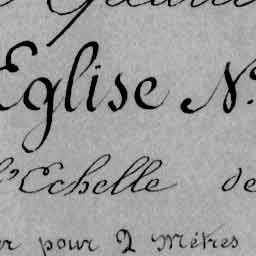 Eglise N.
l'Echelle de
pour 2 Mètres